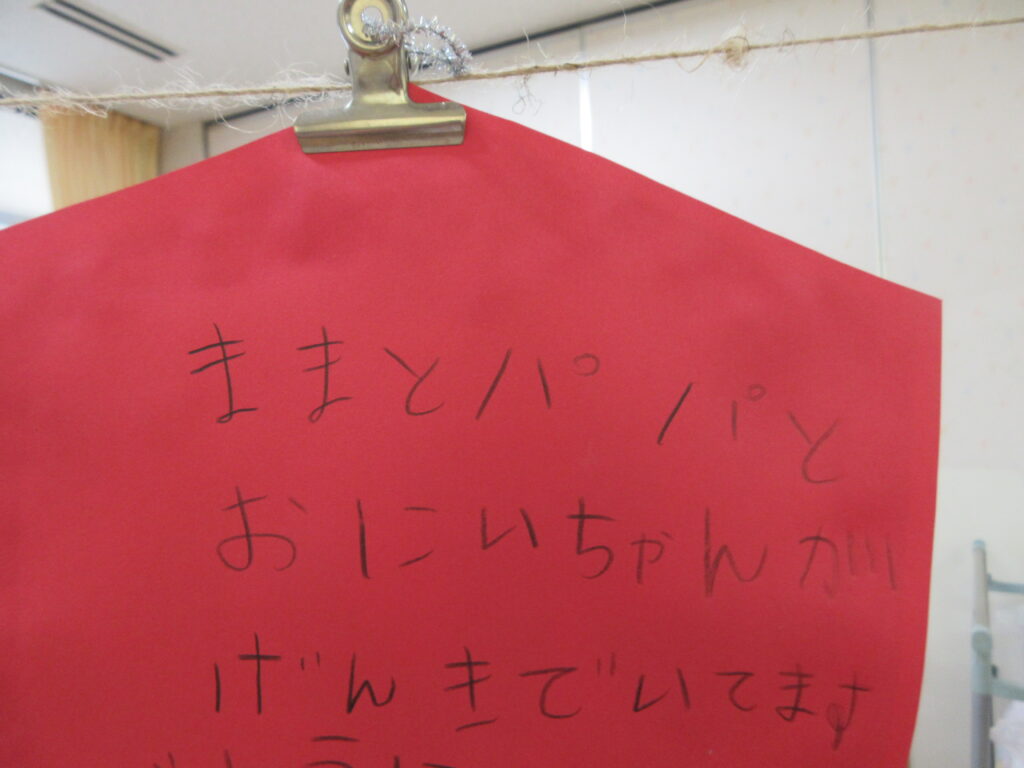 ままとパパと
おにいちゃんが
げんきでいてます